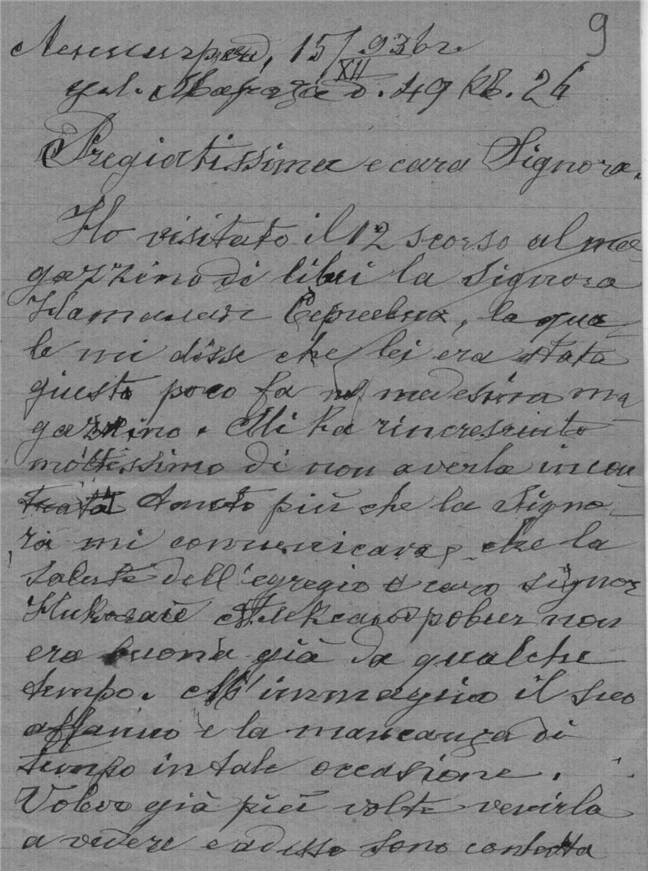 9
Ленинград, 15/XII 936 г.
ул. Марата д. 49 кв. 26
Pregiatissima e cara Signora.
Ho visitato il 12 scorso al ma-
gazzino di libri la Signora
Наталья Сергеевна, la qua-
le mi disse che lei era stata
giusto poco fa nel madesimo ma
gazzino. Mi ha rincresciuto
moltissimo di non averla incon
trata tanto più che la Signo-
ra mi comunicava, che la
salute dell'egregio e caro signor
Николай Александрович non
era buona già da qualche
tempo. M'immagino il suo
affanno e la mancanza di
tempo in tale occasione.
Volevo già più volte venirla
a vedere e adesso sono contenta